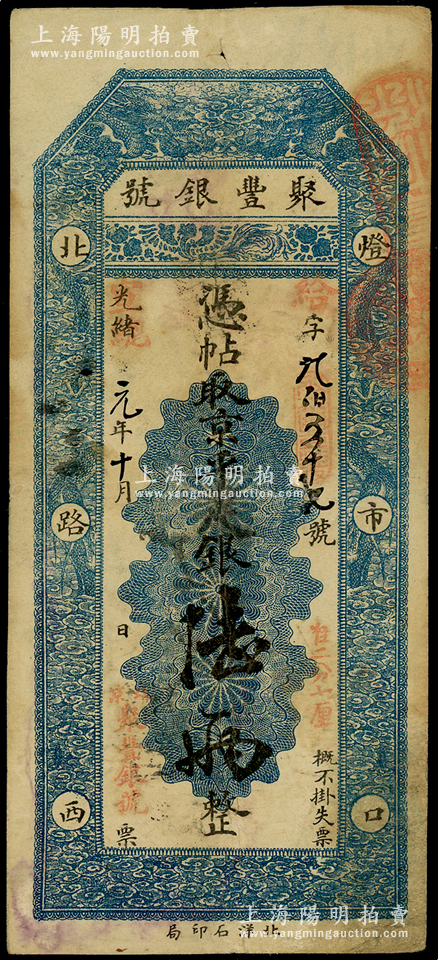 上海陽明拍賣
www.yangmingauction.com
號銀豐聚
燈市口
北路西
字九佰五十九號
概不掛失票
憑帖取京平足銀陸兩整
光緒元年十月 日 票
上海陽明拍賣
www.yangmingauction.com
局印石洋北
上海陽明拍賣
www.yangmingauction.com